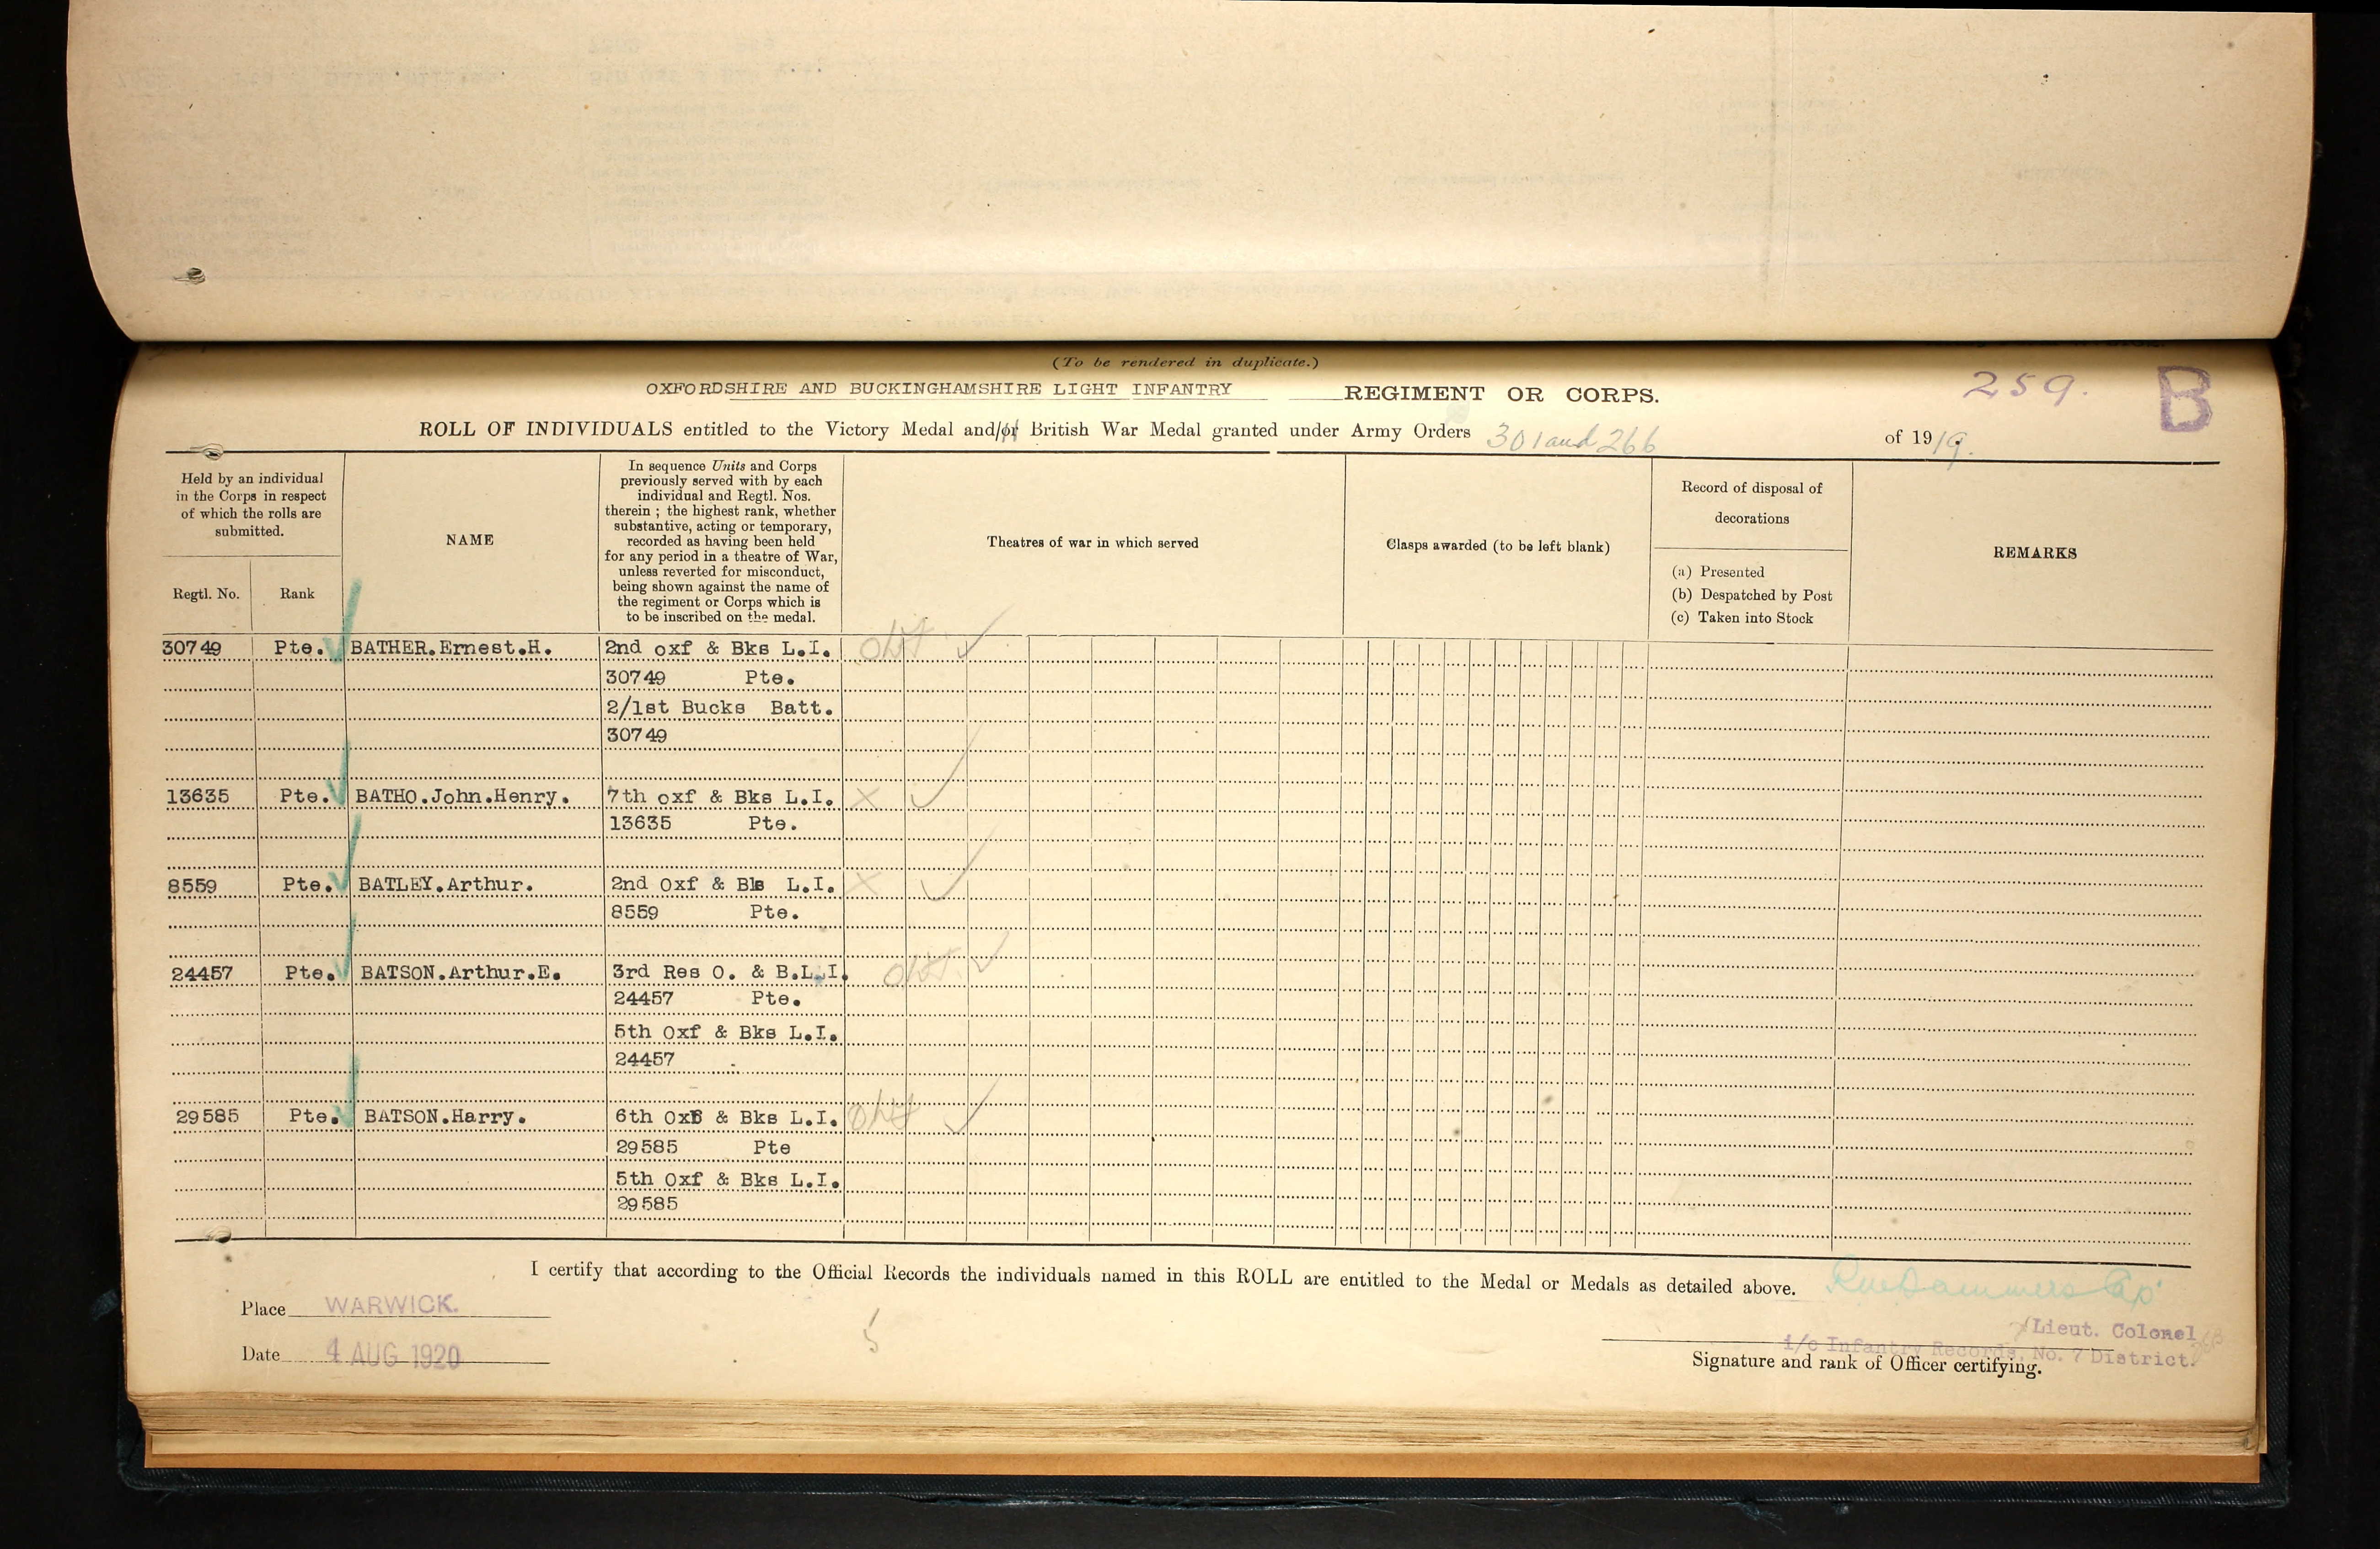 (To be rendered in duplicate.)
OXFORDSHIRE AND BUCKINGHAMSHIRE LIGHT INFANTRY REGIMENT OR CORPS. 259. B
ROLL OF INDIVIDUALS entitled to the Victory Medal and/or British War Medal granted under Army Orders 301 and 266 of 1919.
Held by an individual
in the Corps in respect
of which the rolls are
submitted.
Regtl. No. Rank
NAME
In sequence Units and Corps
previously served with by each
individual and Regtl. Nos.
therein ; the highest rank, whether
substantive, acting or temporary,
recorded as having been held
for any period in a theatre of War,
unless reverted for misconduct,
being shown against the name of
the regiment or Corps which is
to be inscribed on the medal.
Theatres of war in which served
Clasps awarded (to be left blank)
Record of disposal of
decorations
(a) Presented
(b) Despatched by Post
(c) Taken into Stock
REMARKS
30749 Pte. BATHER.Ernest.H. 2nd oxf & Bks L.I.
30749 Pte.
2/1st Bucks Batt.
30749
13635 Pte. BATHO.John.Henry. 7th oxf & Bks L.I. X
13635 Pte.
8559 Pte. BATLEY.Arthur. 2nd Oxf & Bks L.I. X
8559 Pte.
24457 Pte. BATSON.Arthur.E. 3rd Res O. & B.L.I.
24457 Pte.
5th Oxf & Bks L.I.
24457
29585 Pte. BATSON.Harry. 6th Oxf & Bks L.I.
29585 Pte
5th Oxf & Bks L.I.
29585
I certify that according to the Official Records the individuals named in this ROLL are entitled to the Medal or Medals as detailed above.
Place WARWICK.
Date 4 AUG 1920
5
Lieut. Colonel
i/c Infantry Records, No. 7 District.
Signature and rank of Officer certifying.